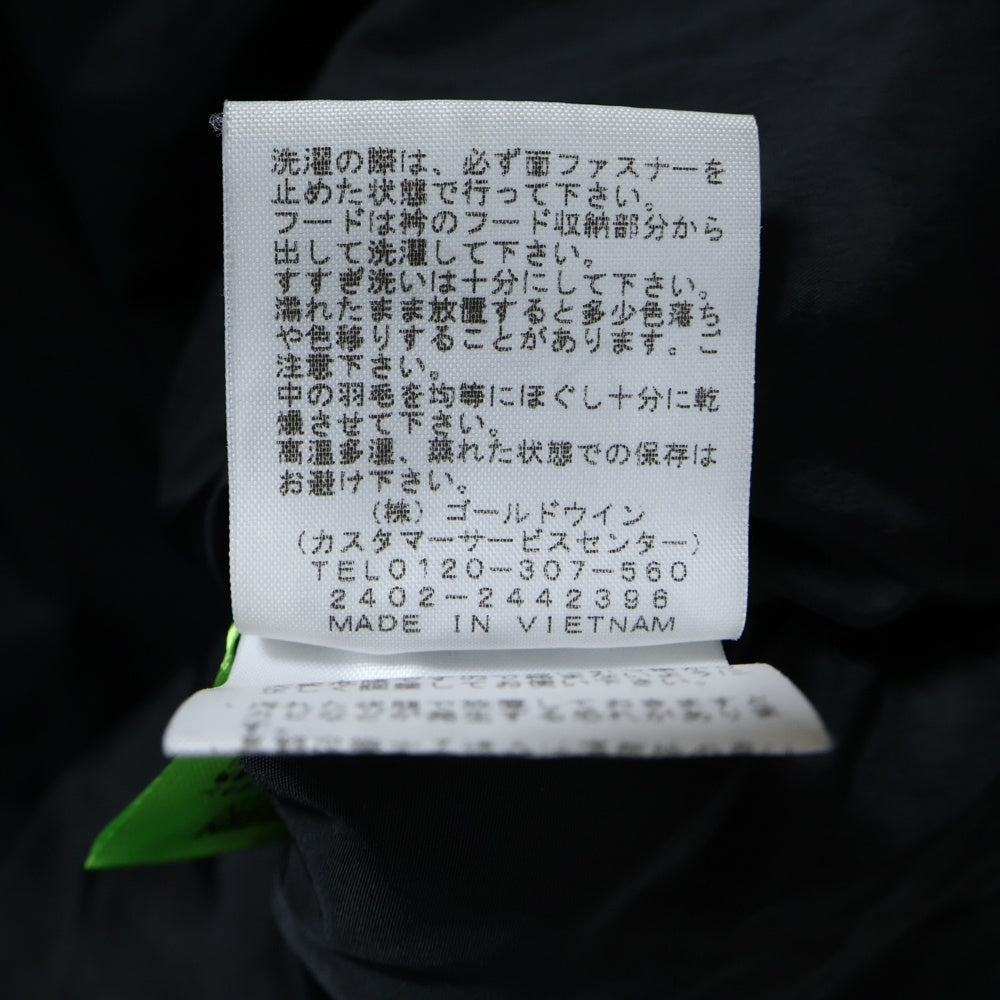 洗濯の際は、必ず面ファスナーを
止めた状態で行って下さい。
フードは衿のフード収納部分から
出して洗濯して下さい。
すすぎ洗いは十分にして下さい。
濡れたまま放置すると多少色落ち
や色移りすることがあります。ご
注意下さい。
中の羽毛を均等にほぐし十分に乾
燥させて下さい。
高温多湿、蒸れた状態での保存は
お避け下さい。
(株)ゴールドウイン
(カスタマーサービスセンター)
TEL0120-307-560
2402-2442396
MADE IN VIETNAM